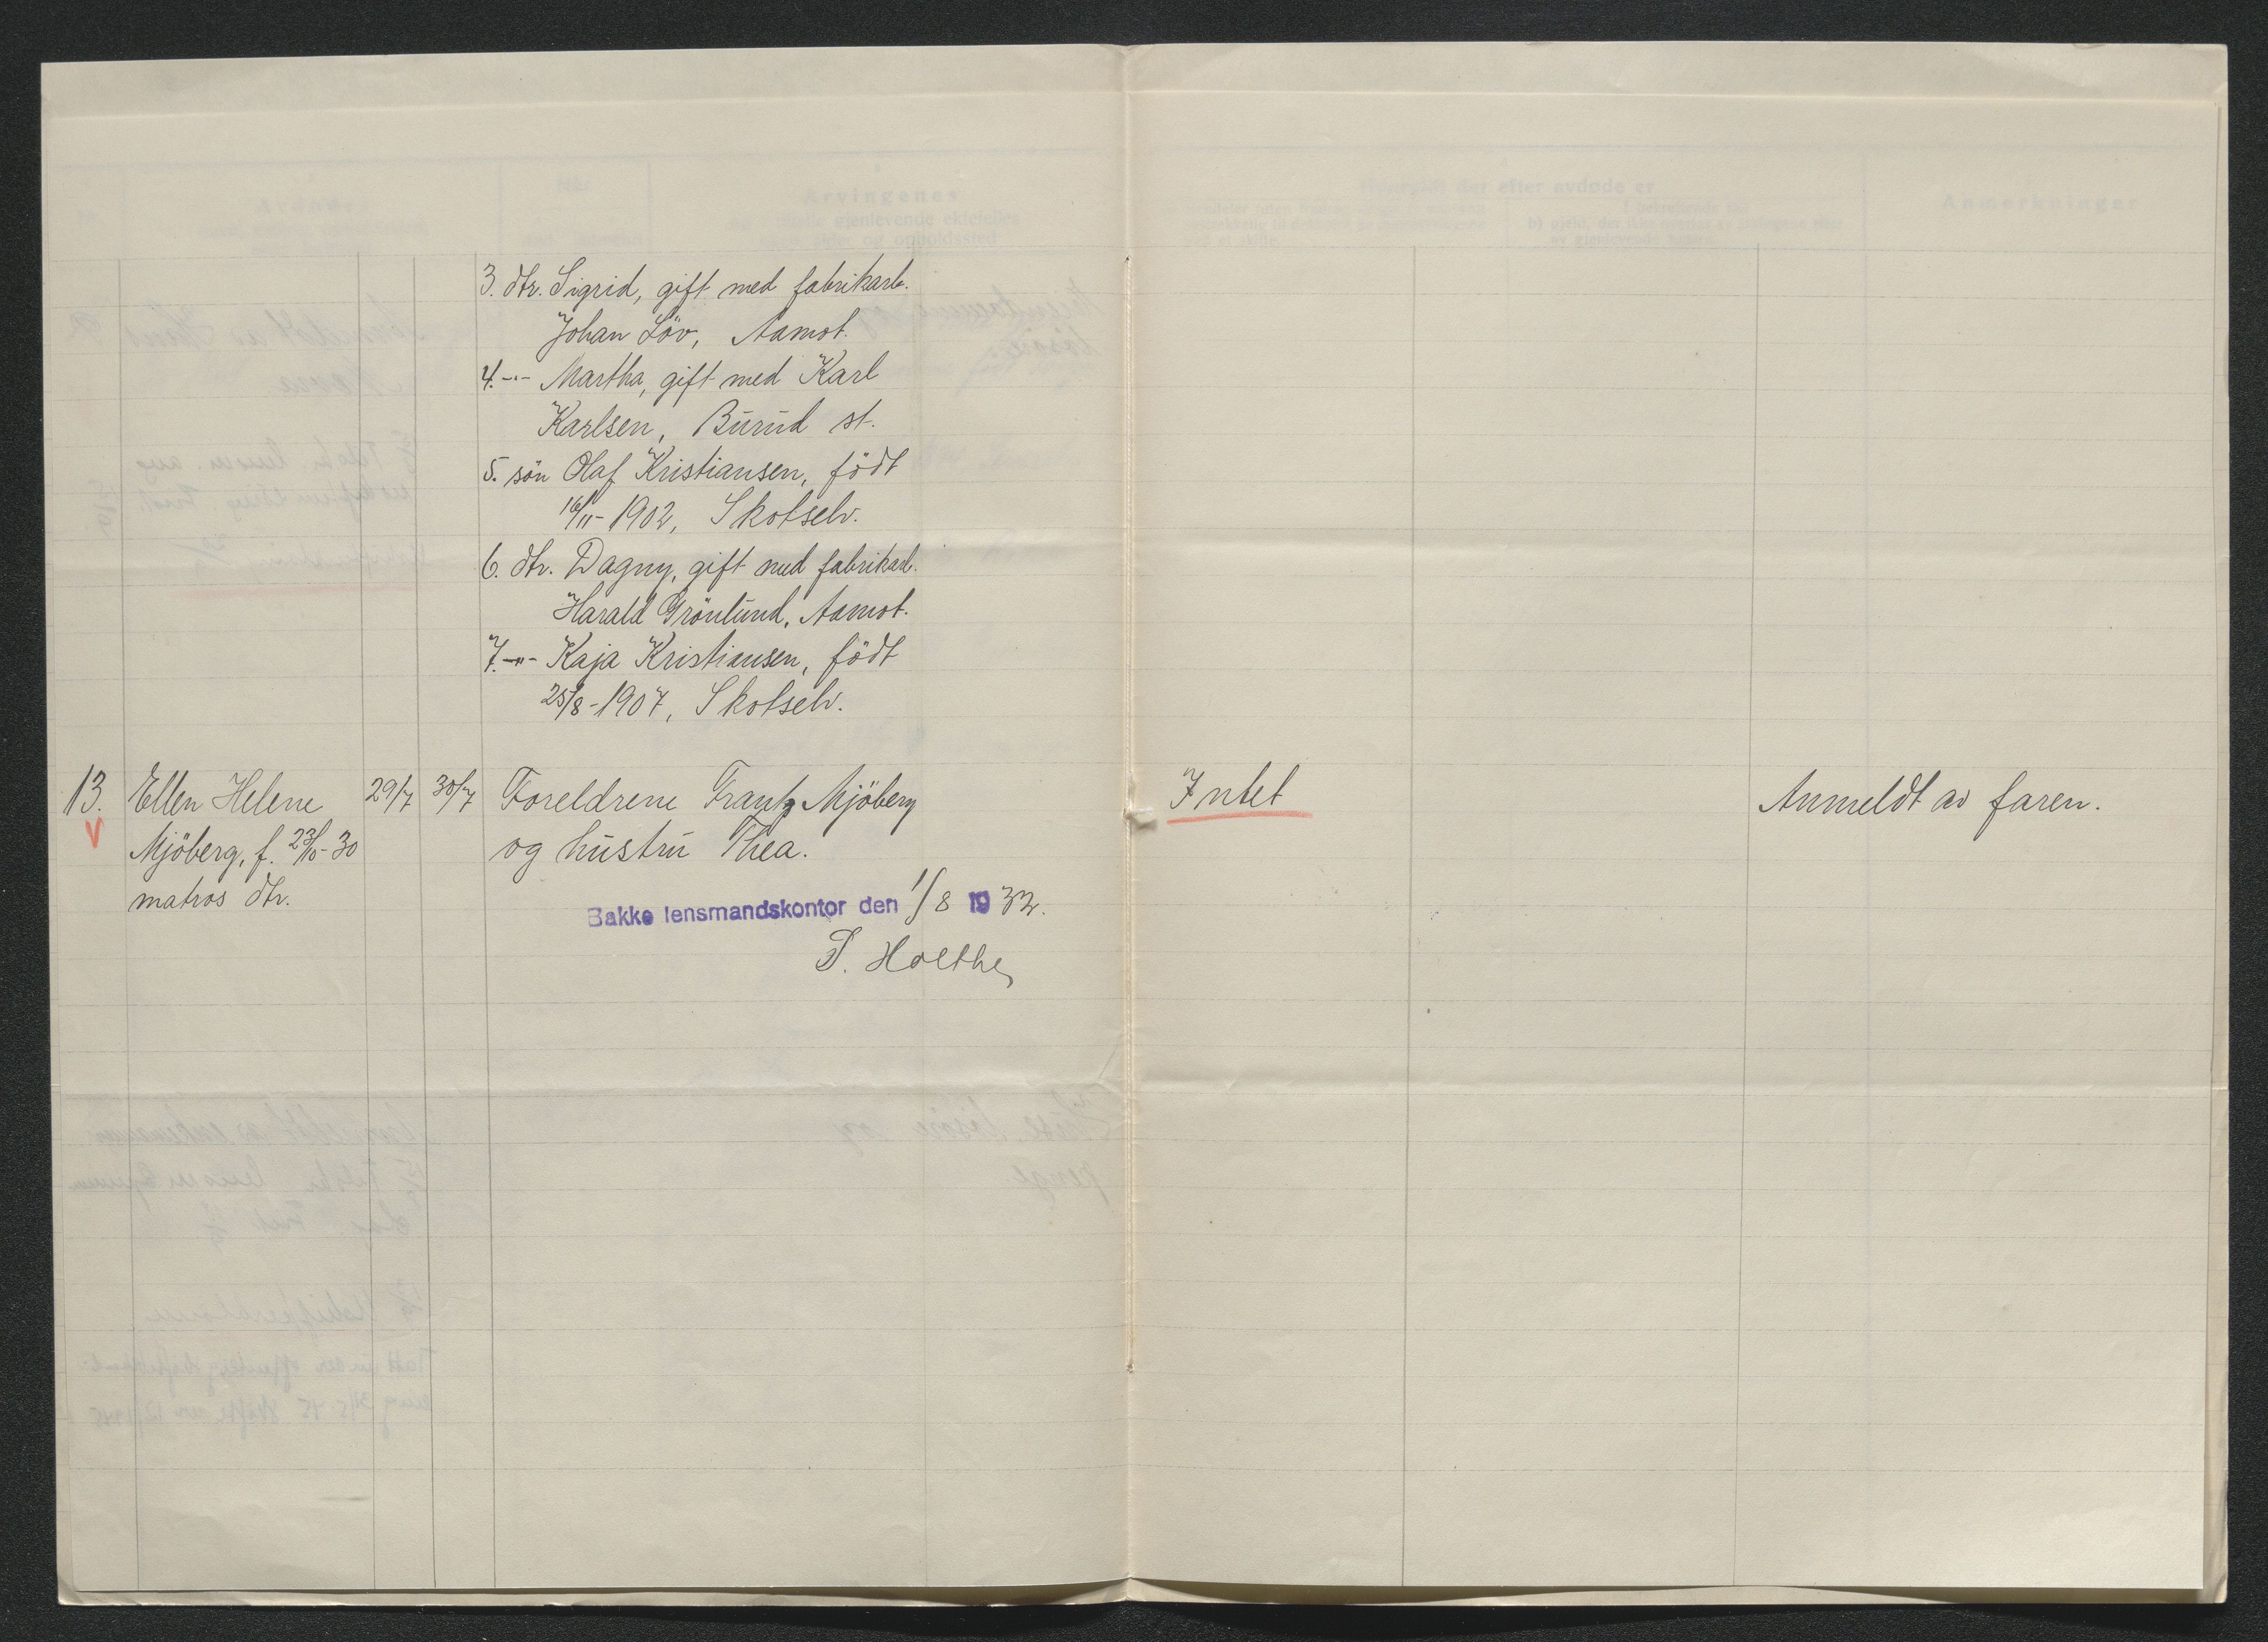 3. dtr. Sigrid, gift med fabrikarb.
Johan Löv, Aamot.
4. -"- Martha, gift med Karl
Karlsen, Burud st.
5. sön Olaf Kristiansen, födt
16/11-1902, Skotselv.
6. dtr. Dagny, gift med fabrikarb.
Harald Grönlund, Aamot.
7. -"- Kaja Kristiansen, födt
25/8-1907, Skotselv.
13. Ellen Helene 29/7 30/7 Foreldrene Frantz Mjöberg Intet Anmeldt av faren.
V Mjöberg, f. 23/10-30 og hustru Thea.
matros dtr.
Bakke lensmandskontor den 1/8 1932.
S. Holthe